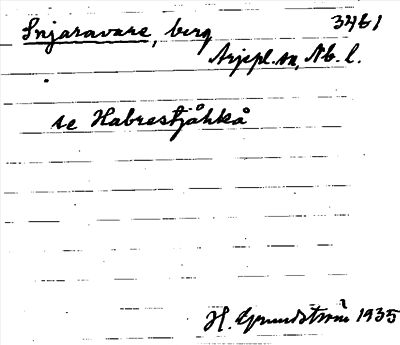 Snjaravare, berg 3461
Arjepl. sn, Nb. l.
se Habrestjåhkå
H. Grundström 1935